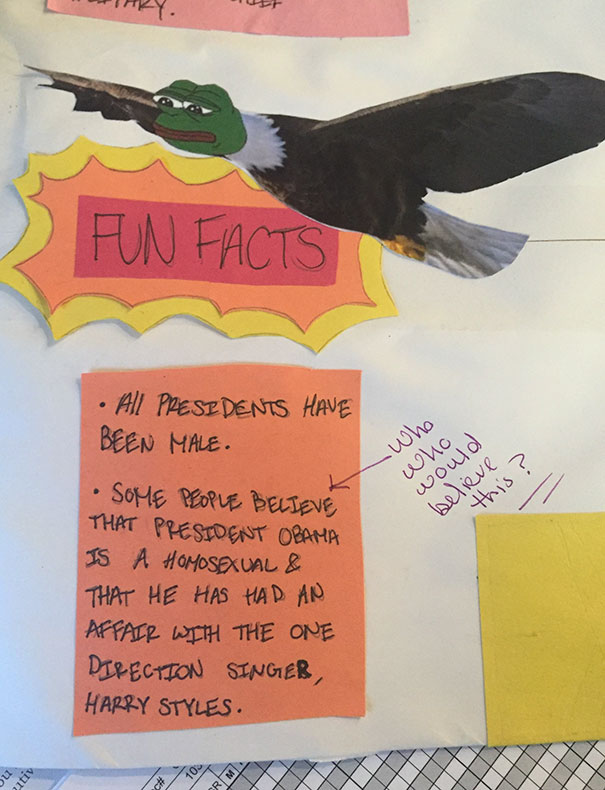 FUN FACTS
• All PRESIDENTS HAVE
BEEN MALE.
• SOME PEOPLE BELIEVE
THAT PRESIDENT OBAMA
IS A HOMOSEXUAL &
THAT HE HAS HAD AN
AFFAIR WITH THE ONE
DIRECTION SINGER,
HARRY STYLES.
Who
who
would
believe
this?